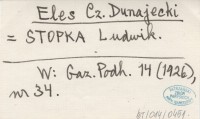 Eles Cz. Dunajecki
= STOPKA Ludwik.
W: Gaz. Podh. 14 (1926),
nr 34.